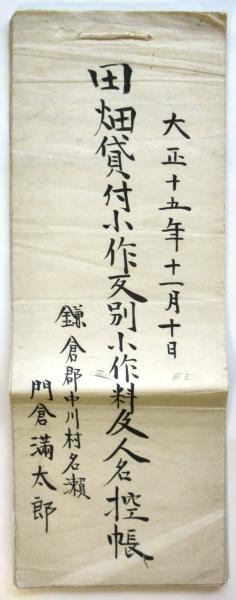 大正十五年十一月十日
田畑貸付小作反別小作料及人名控帳
鎌倉郡中川村名瀬
門倉満太郎